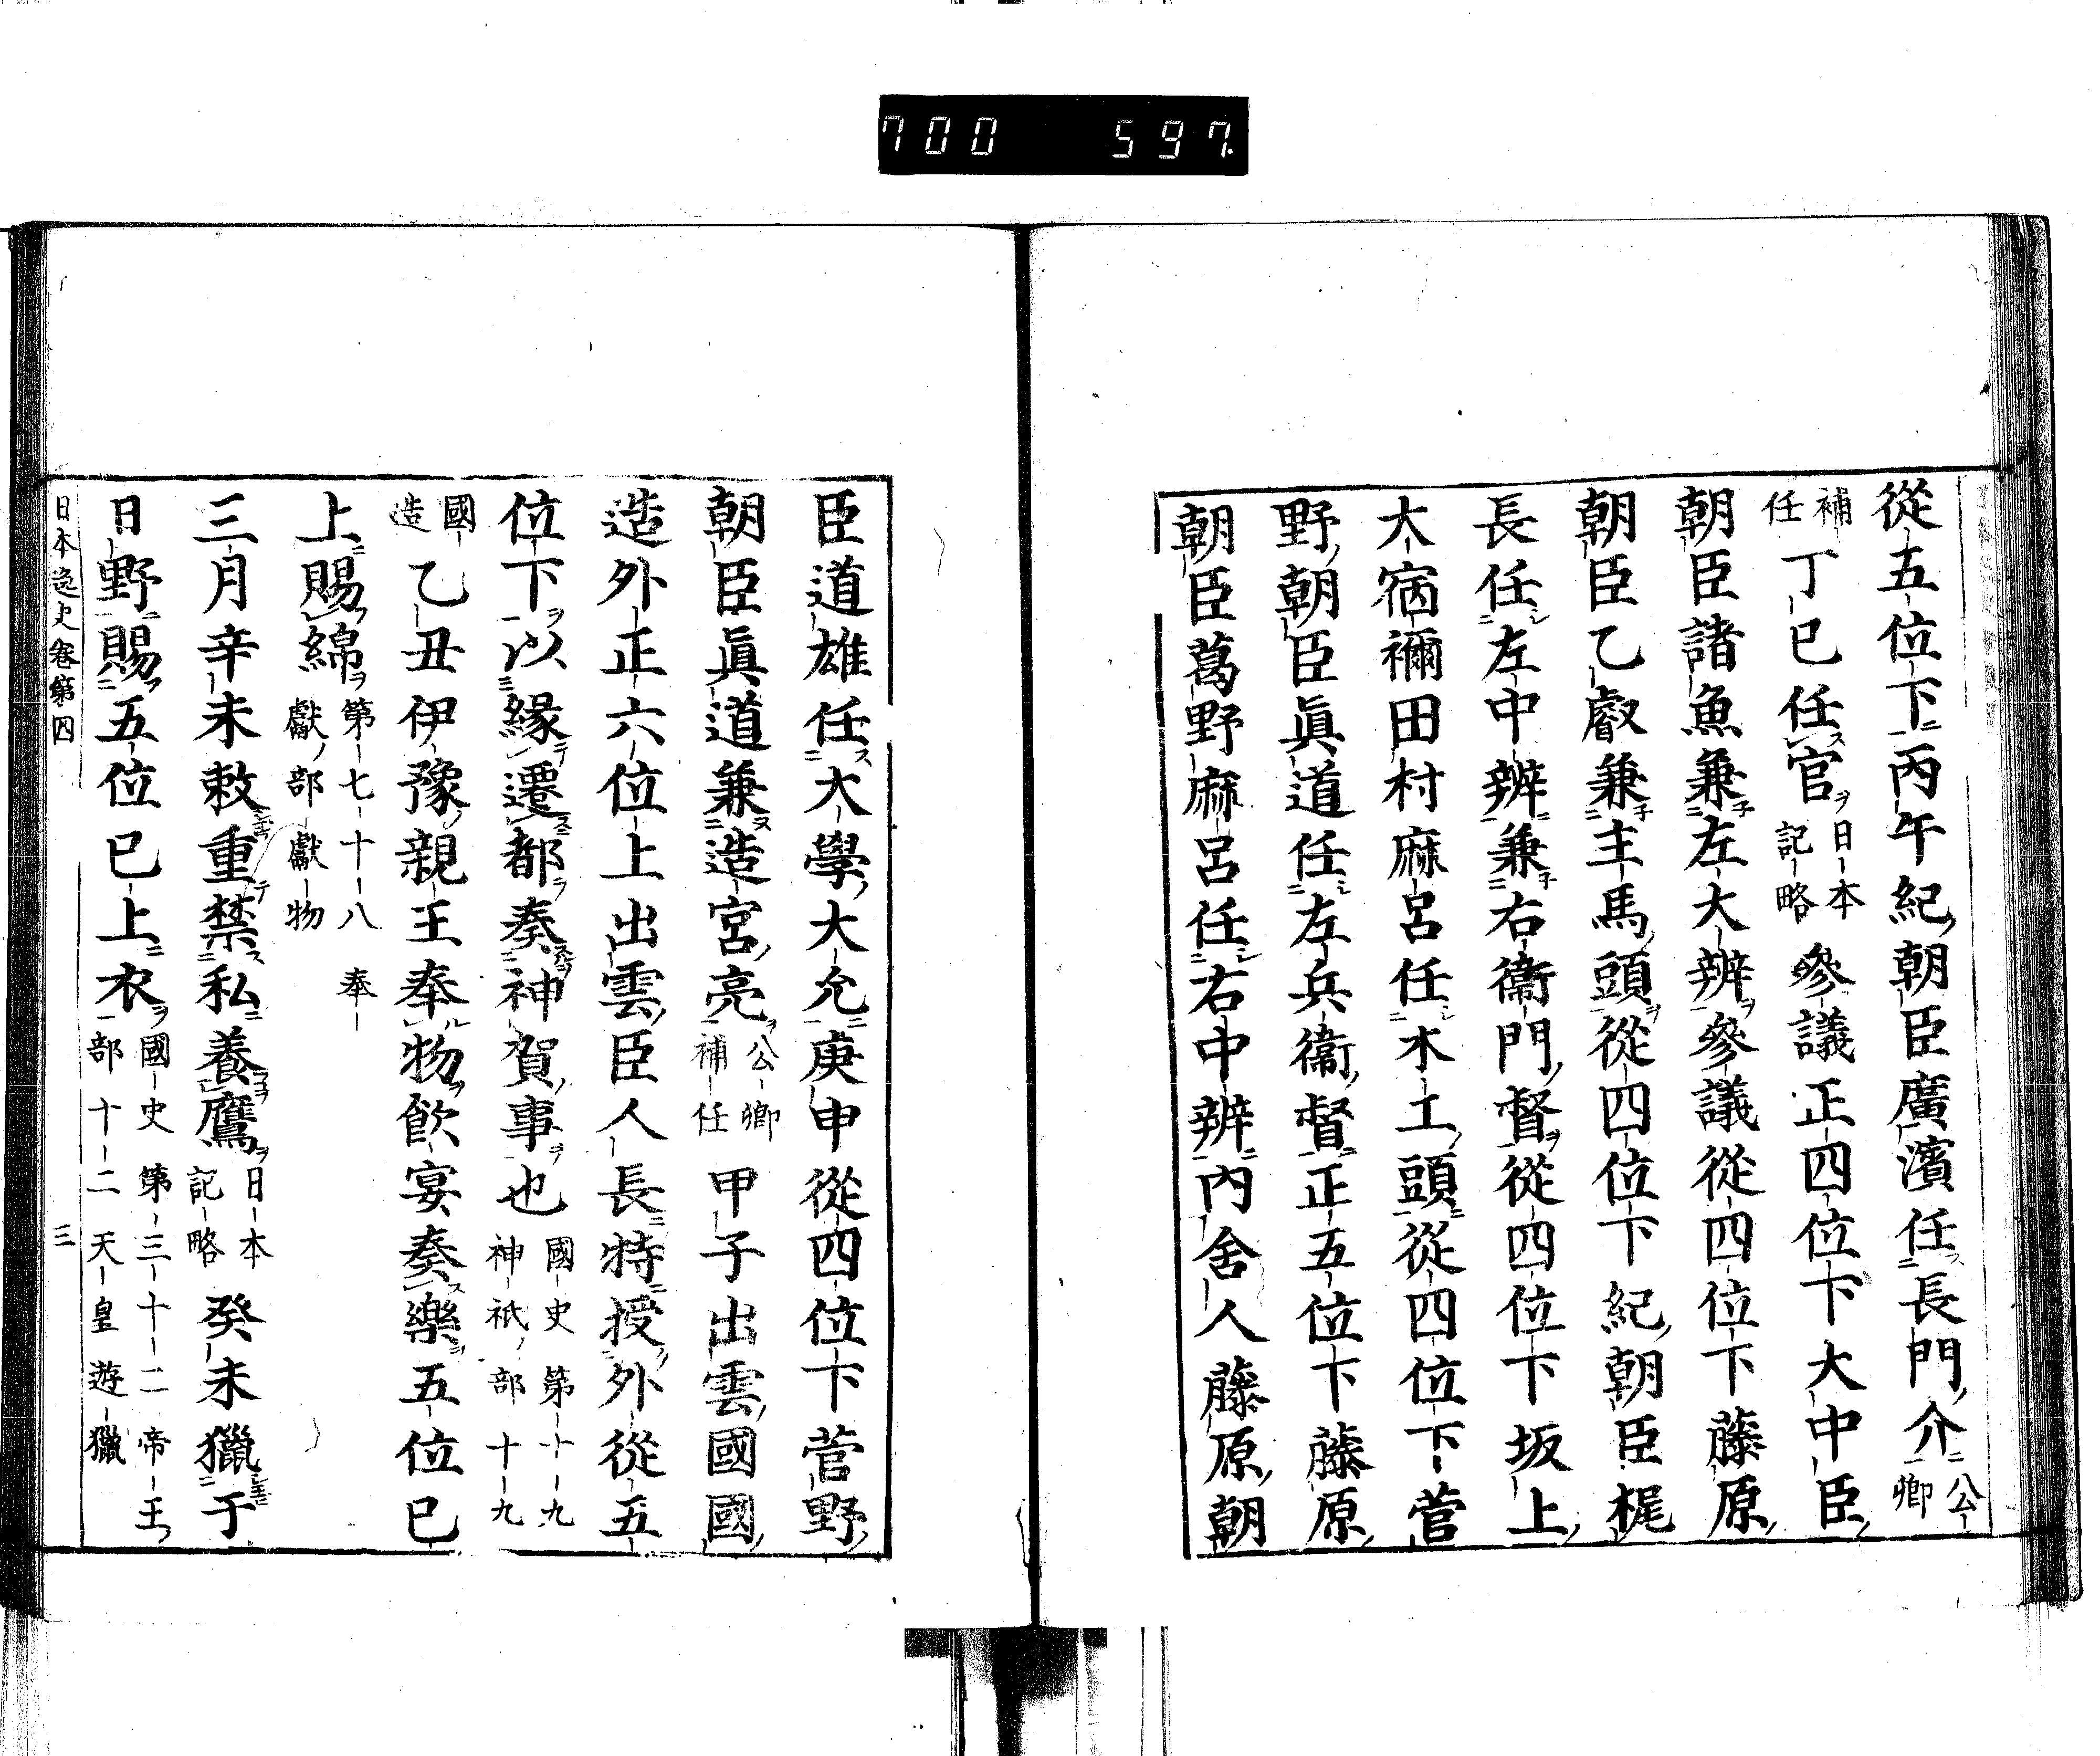 700 597
從五位下丙午紀朝臣廣濱任長門介公卿
補任丁巳任官日本記略參議正四位下大中臣
朝臣諸魚兼左大辨參議從四位下藤原
朝臣乙叡兼主馬頭從四位下紀朝臣梶
長任左中辨兼右衞門督從四位下坂上
大宿禰田村麻呂任木工頭從四位下菅
野朝臣眞道任左兵衞督正五位下藤原
朝臣葛野麻呂任右中辨內舍人藤原朝
臣道雄任大學大允庚申從四位下菅野
朝臣眞道兼造宮亮公卿補任甲子出雲國國
造外正六位上出雲臣人長特授外從五
位下以緣遷都奏神賀事也國史第十九神祇部十九
國造乙丑伊豫親王奉物飮宴奏樂五位已
上賜綿第七十八奉獻部獻物
三月辛未敕重禁私養鷹日本記略癸未獵于
日野賜五位已上衣國史第三十二帝王部十二天皇遊獵
日本逸史卷第四 三